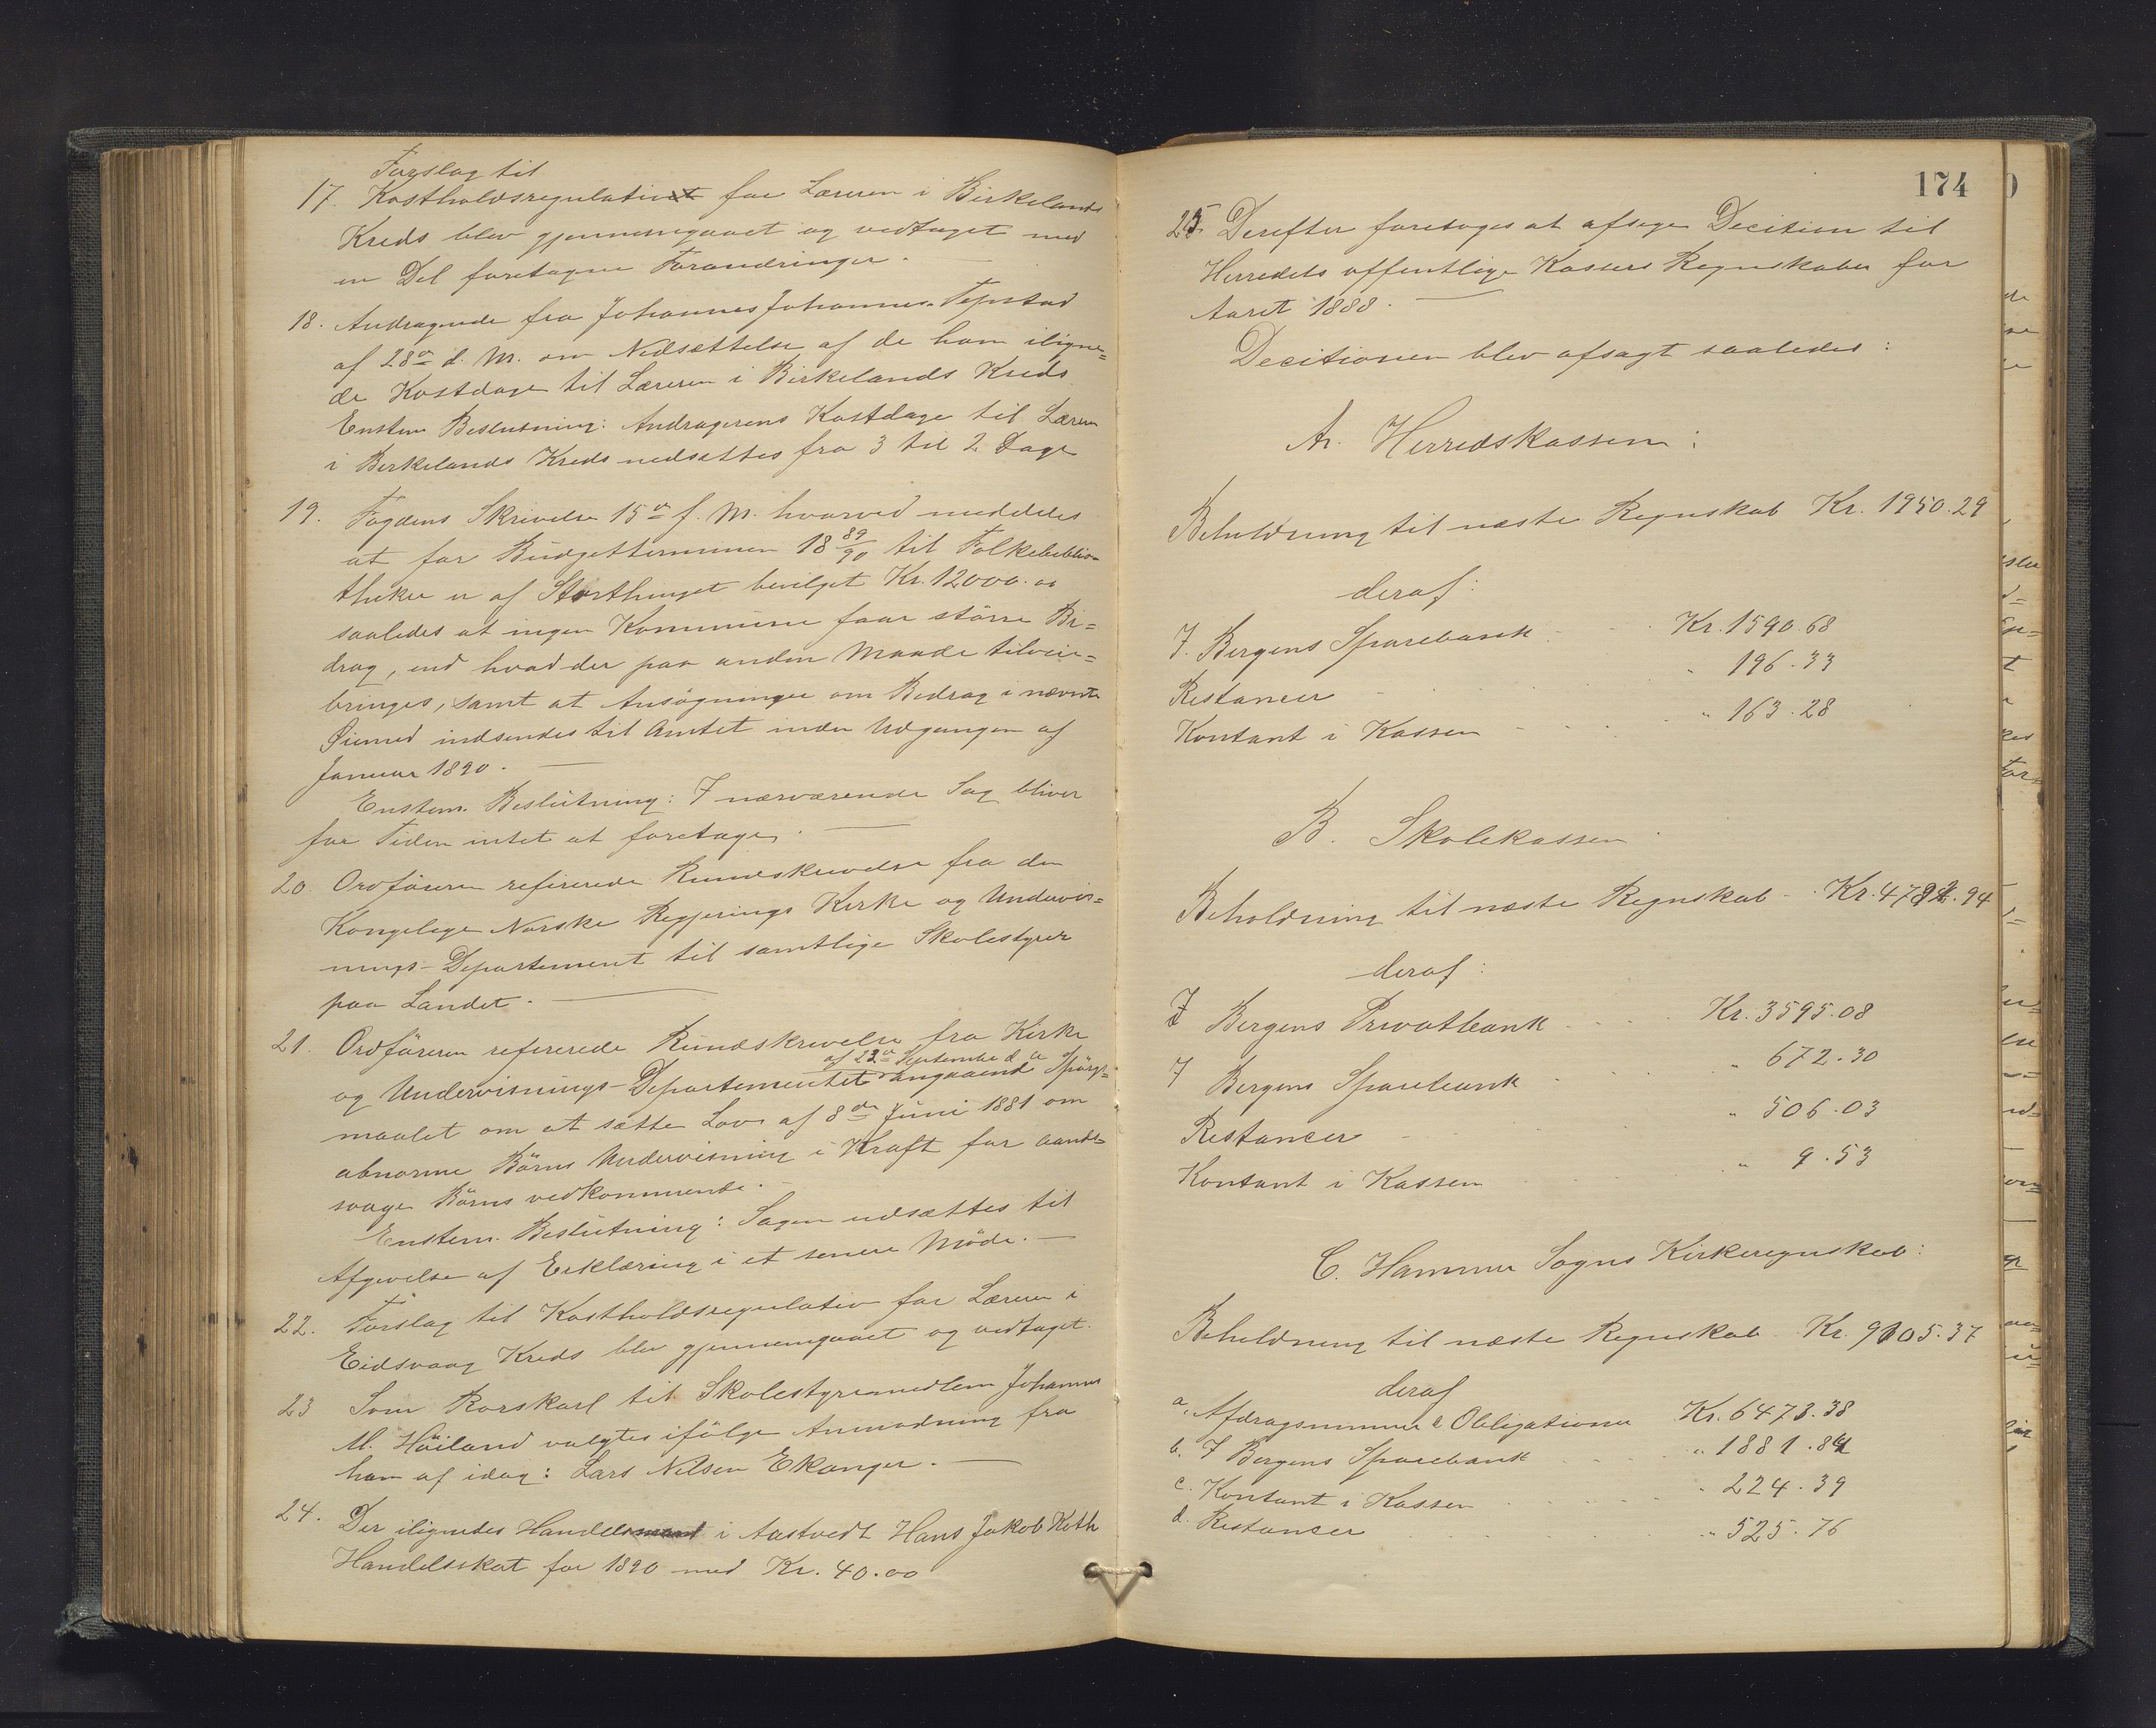 Forslag til
17. Kostholdsregulativ for Læreren i Birkelands
Kreds blev gjennemgaaet og vedtaget med
en Del foretagne Forandringer.
18. Andragende fra Johannes Johannes. Tepstad
af 28de d. M. om Nedsættelse af de ham iligne=
de Kostdage til Læreren i Birkelands Kreds
Enstem Beslutning: Andragerens Kostdage til Læreren
i Birkelands Kreds nedsættes fra 3 til 2 Dage
19. Fogdens Skrivelse 15de f. M. hvorved meddeles
at for Budgetterminen 18 89/90 til Folkebiblio=
theker er af Storthinget bevilget Kr. 12000.00
saaledes at ingen Kommune faar större Bi=
drag, end hvad der paa anden Maade tilveie=
bringes, samt at Ansögninger om Bidrag i nævnte
Øiemed indsendes til Amtet inden Udgangen af
Januar 1890.
Enstem. Beslutning: I nærværende Sag bliver
for Tiden intet at foretage.
20. Ordföreren refererede Rundskrivelse fra den
Kongelige Norske Regjerings Kirke og Undervis=
nings-Departement til samtlige Skolestyrer
paa Landet.
21. Ordföreren refererede Rundskrivelse fra Kirke
af 23de September d. A.
og Undervisnings-Departementet angaaende Spörgs=
maalet om at sætte Lov af 8de Juni 1881 om
abnorme Börns Undervisning i Kraft for aands=
svage Börns vedkommende.
Enstem. Beslutning: Sagen udsættes til
Afgivelse af Erklæring i et senere Möde.
22. Forslag til Kostholdsregulativ for Læreren i
Eidsvaag Kreds blev gjennemgaaet og vedtaget.
23 Som Rorskarl til Skolestyremedlem Johannes
M. Höiland valgtes ifölge Anmodning fra
ham af idag: Lars Nilsen Ekanger.
24. Der ilignedes Handelsmand i Aastvedt Hans Jakob Keth
Handelsskat for 1890 med Kr. 40.00
174
25 Derefter foretoges at afsige Decition til
Herredets offentlige Kassers Regnskaber for
Aaret 1888.
Decitionen blev afsagt saaledes:
A. Herredskassen:
Beholdning til næste Regnskab Kr. 1950.29
deraf:
I. Bergens Sparebank Kr. 1590.68
Restancer " 196.33
Kontant i Kassen " 163.28
B. Skolekassen
Beholdning til næste Regnskab Kr. 4782.94
deraf:
I Bergens Privatbank Kr. 3595.08
I Bergens Sparebank " 672.30
Restancer " 506.03
Kontant i Kassen " 9.53
C. Hammer Sogns Kirkeregnskab:
Beholdning til næste Regnskab Kr. 9105.37
deraf
a. Afdragssummer & Obligationer Kr. 6473.38
b. I Bergens Sparebank " 1881.84
c. Kontant i Kassen " 224.39
d. Restancer " 525.76